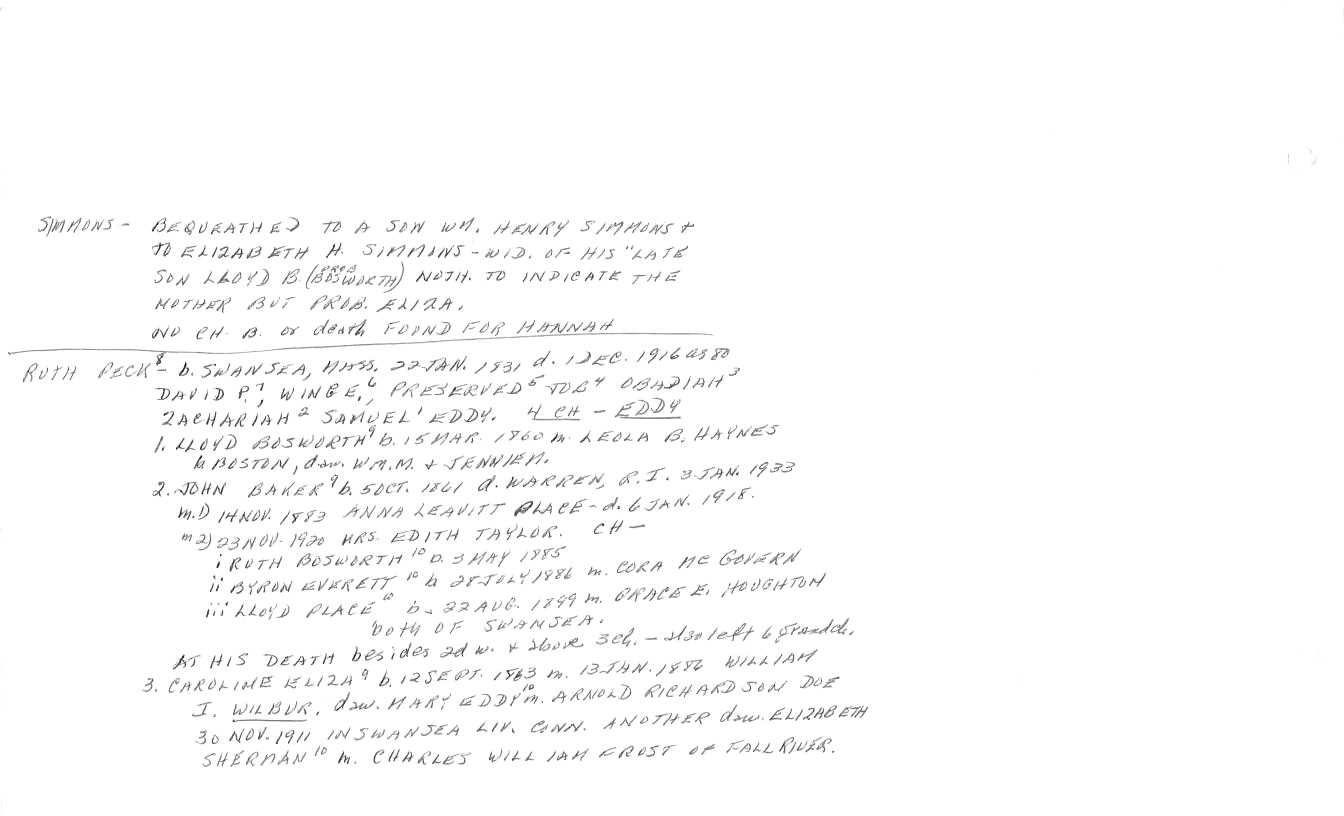 SIMMONS - BEQUEATHED TO A SON WM. HENRY SIMMONS +
TO ELIZABETH H. SIMMONS - WID. OF HIS "LATE
SON LLOYD B. (PROB BOSWORTH) NOTH. TO INDICATE THE
MOTHER BUT PROB. ELIZA.
NO CH. B. or death FOUND FOR HANNAH
RUTH PECK⁸ - b. SWANSEA, MASS. 22 JAN. 1831 d. 1 DEC. 1916 as 80
DAVID P.⁷, WING E.⁶, PRESERVED⁵ JOB⁴ OBADIAH³
ZACHARIAH² SAMUEL¹ EDDY. 4 CH - EDDY
1. LLOYD BOSWORTH⁹ b. 15 MAR. 1860 m. LEOLA B. HAYNES
b BOSTON, daw. WM. M. + JENNIE M.
2. JOHN BAKER⁹ b. 5 OCT. 1861 d. WARREN, R.I. 3 JAN. 1933
m. 1) 14 NOV. 1883 ANNA LEAVITT PLACE - d. 6 JAN. 1918.
m 2) 23 NOV. 1920 MRS. EDITH TAYLOR. CH -
i RUTH BOSWORTH¹⁰ b. 3 MAY 1885
ii BYRON EVERETT¹⁰ b 28 JULY 1886 m. CORA MC GOVERN
iii LLOYD PLACE¹⁰ b. 22 AUG. 1899 m. GRACE E. HOUGHTON
both OF SWANSEA.
AT HIS DEATH besides 2d w. + above 3 ch. - also left 6 grandch.
3. CAROLINE ELIZA⁹ b. 12 SEPT. 1863 m. 13 JAN. 1886 WILLIAM
I. WILBUR. daw. MARY EDDY¹⁰ m. ARNOLD RICHARDSON DOE
30 NOV. 1911 IN SWANSEA LIV. CONN. ANOTHER daw. ELIZABETH
SHERMAN¹⁰ m. CHARLES WILLIAM FROST OF FALL RIVER.